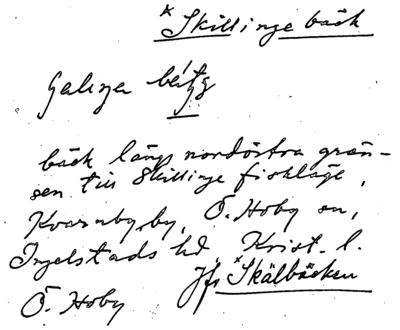 * Skillinge bäck
bäck längs nordöstra grän-
sen till Skillinge fiskläge,
Kvarnby by, Ö. Hoby sn,
Ingelstads hd Krist. l.
Jfr *Skälbäcken
Ö. Hoby